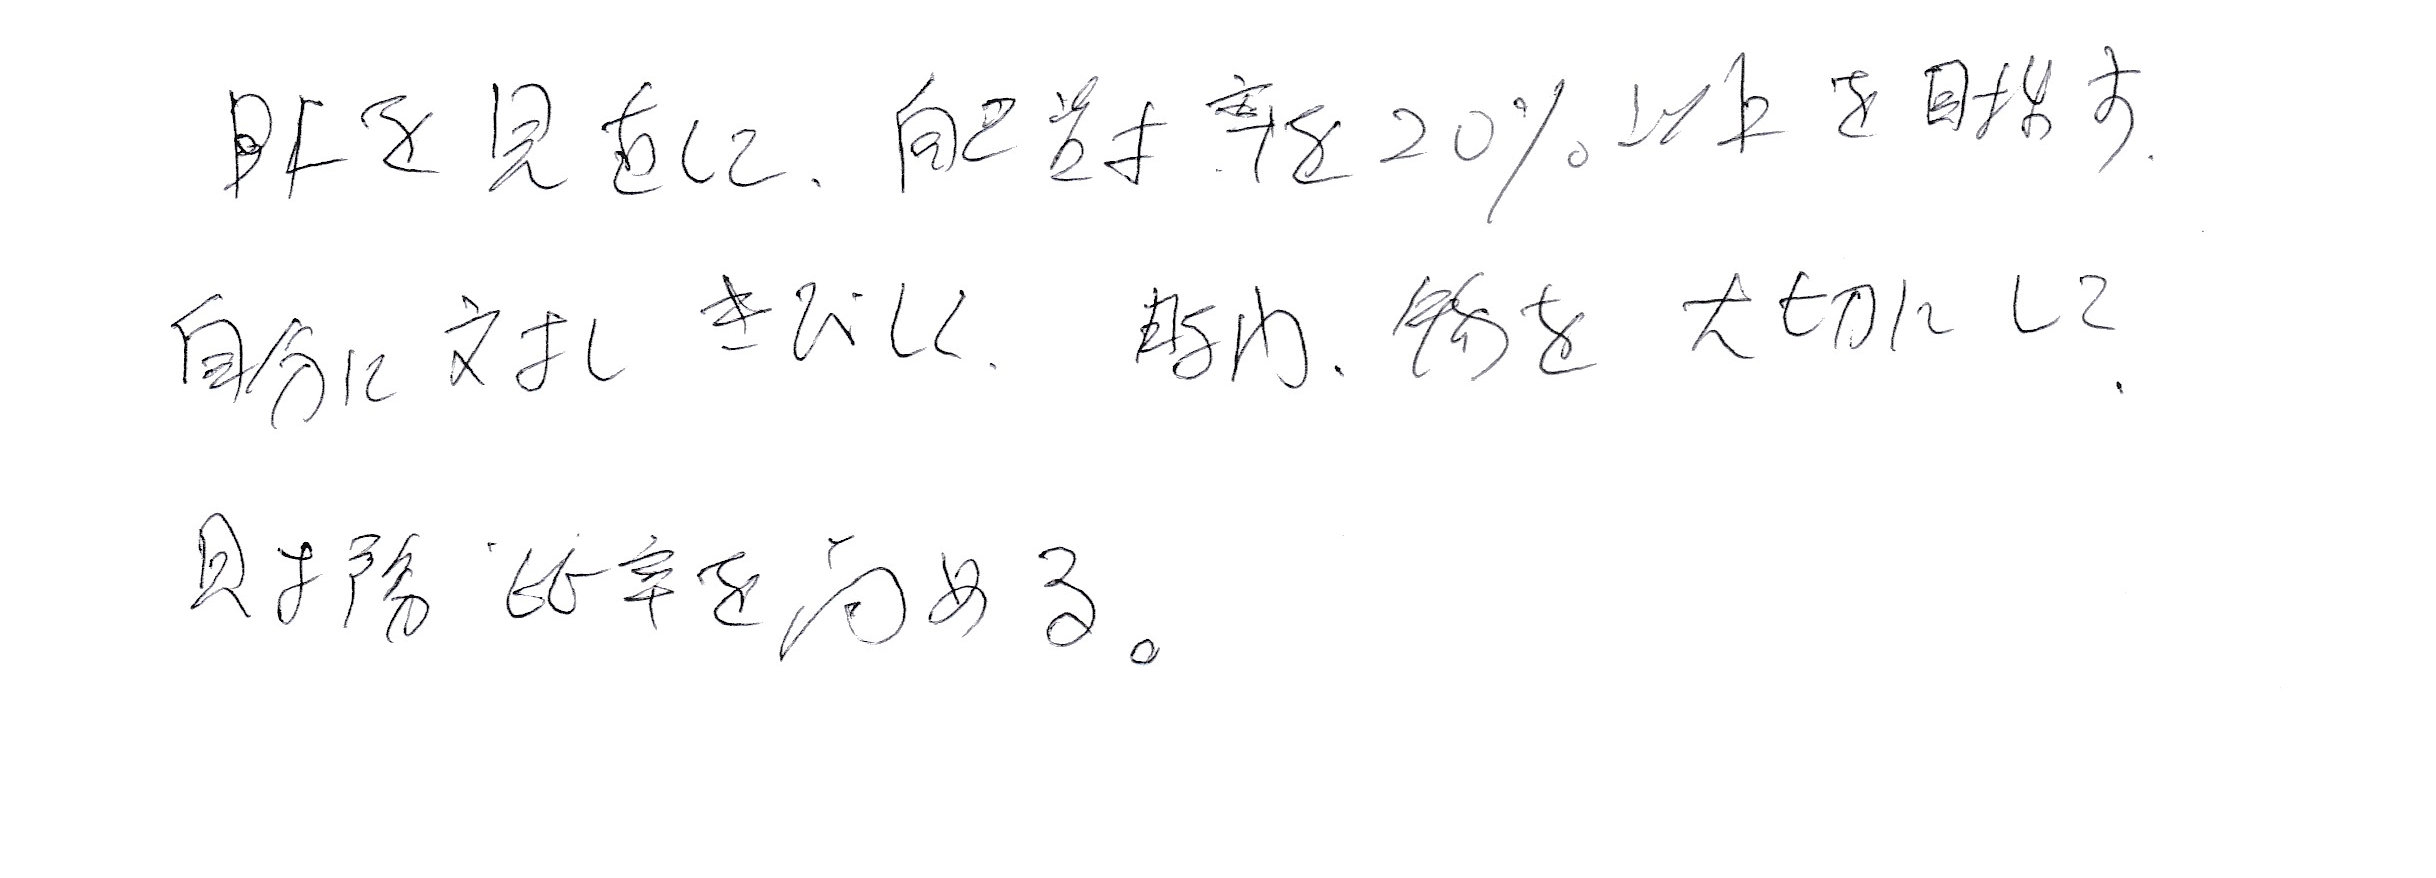 を見直して、自己資本率を20%以上を目指す.
自分に対しきびしく、 時間、物を大切にして、
比率を高める。